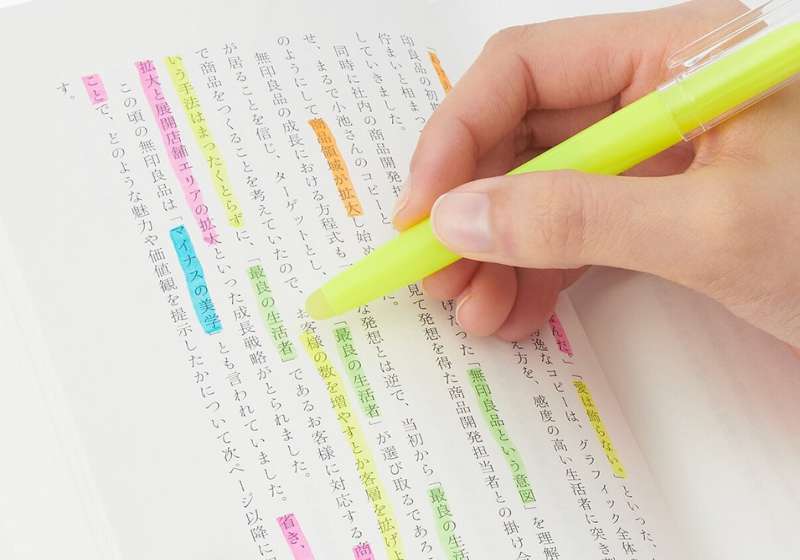 なんだ。」「愛は飾らない。」といった、
逸なコピーは、グラフィック全体
え方を、感度の高い生活者に突き
印良品の初
佇まいと相まっ
していきました。
同時に社内の商品開発 だった「無印良品という意図」を理解
せ、まるで小池さんのコピーと 見て発想を得た商品開発担当者との掛け合
のようにして商品領域が拡大し始め た。
無印良品の成長における方程式も、 な発想とは逆で、当初から「最良の生活
が居ることを信じ、ターゲットとし、「最良の生活者」が選び取るであろ
で商品をつくることを考えていたので、お客様の数を増やすとか客層を拡げよ
いう手法はまったくとらずに、「最良の生活者」であるお客様に対応する商
拡大と展開店舗エリアの拡大といった成長戦略がとられました。
この頃の無印良品は「マイナスの美学」とも言われていました。省き、
ことで、どのような魅力や価値観を提示したかについて次ページ以降に
す。